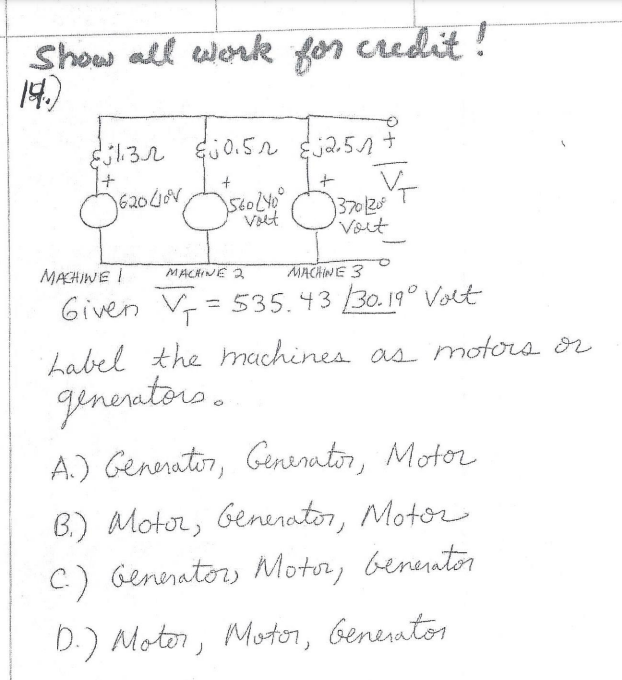 Show all work for credit!
14.)
j1.3Ω j0.5Ω j2.5Ω +
+ + +
620∠10°V 560∠40° Volt 370∠20° Volt
V̅T
−
MACHINE 1 MACHINE 2 MACHINE 3
Given V̅T = 535.43 ∠30.19° Volt
Label the machines as motors or
generators.
A.) Generator, Generator, Motor
B.) Motor, Generator, Motor
C.) Generator, Motor, Generator
D.) Motor, Motor, Generator